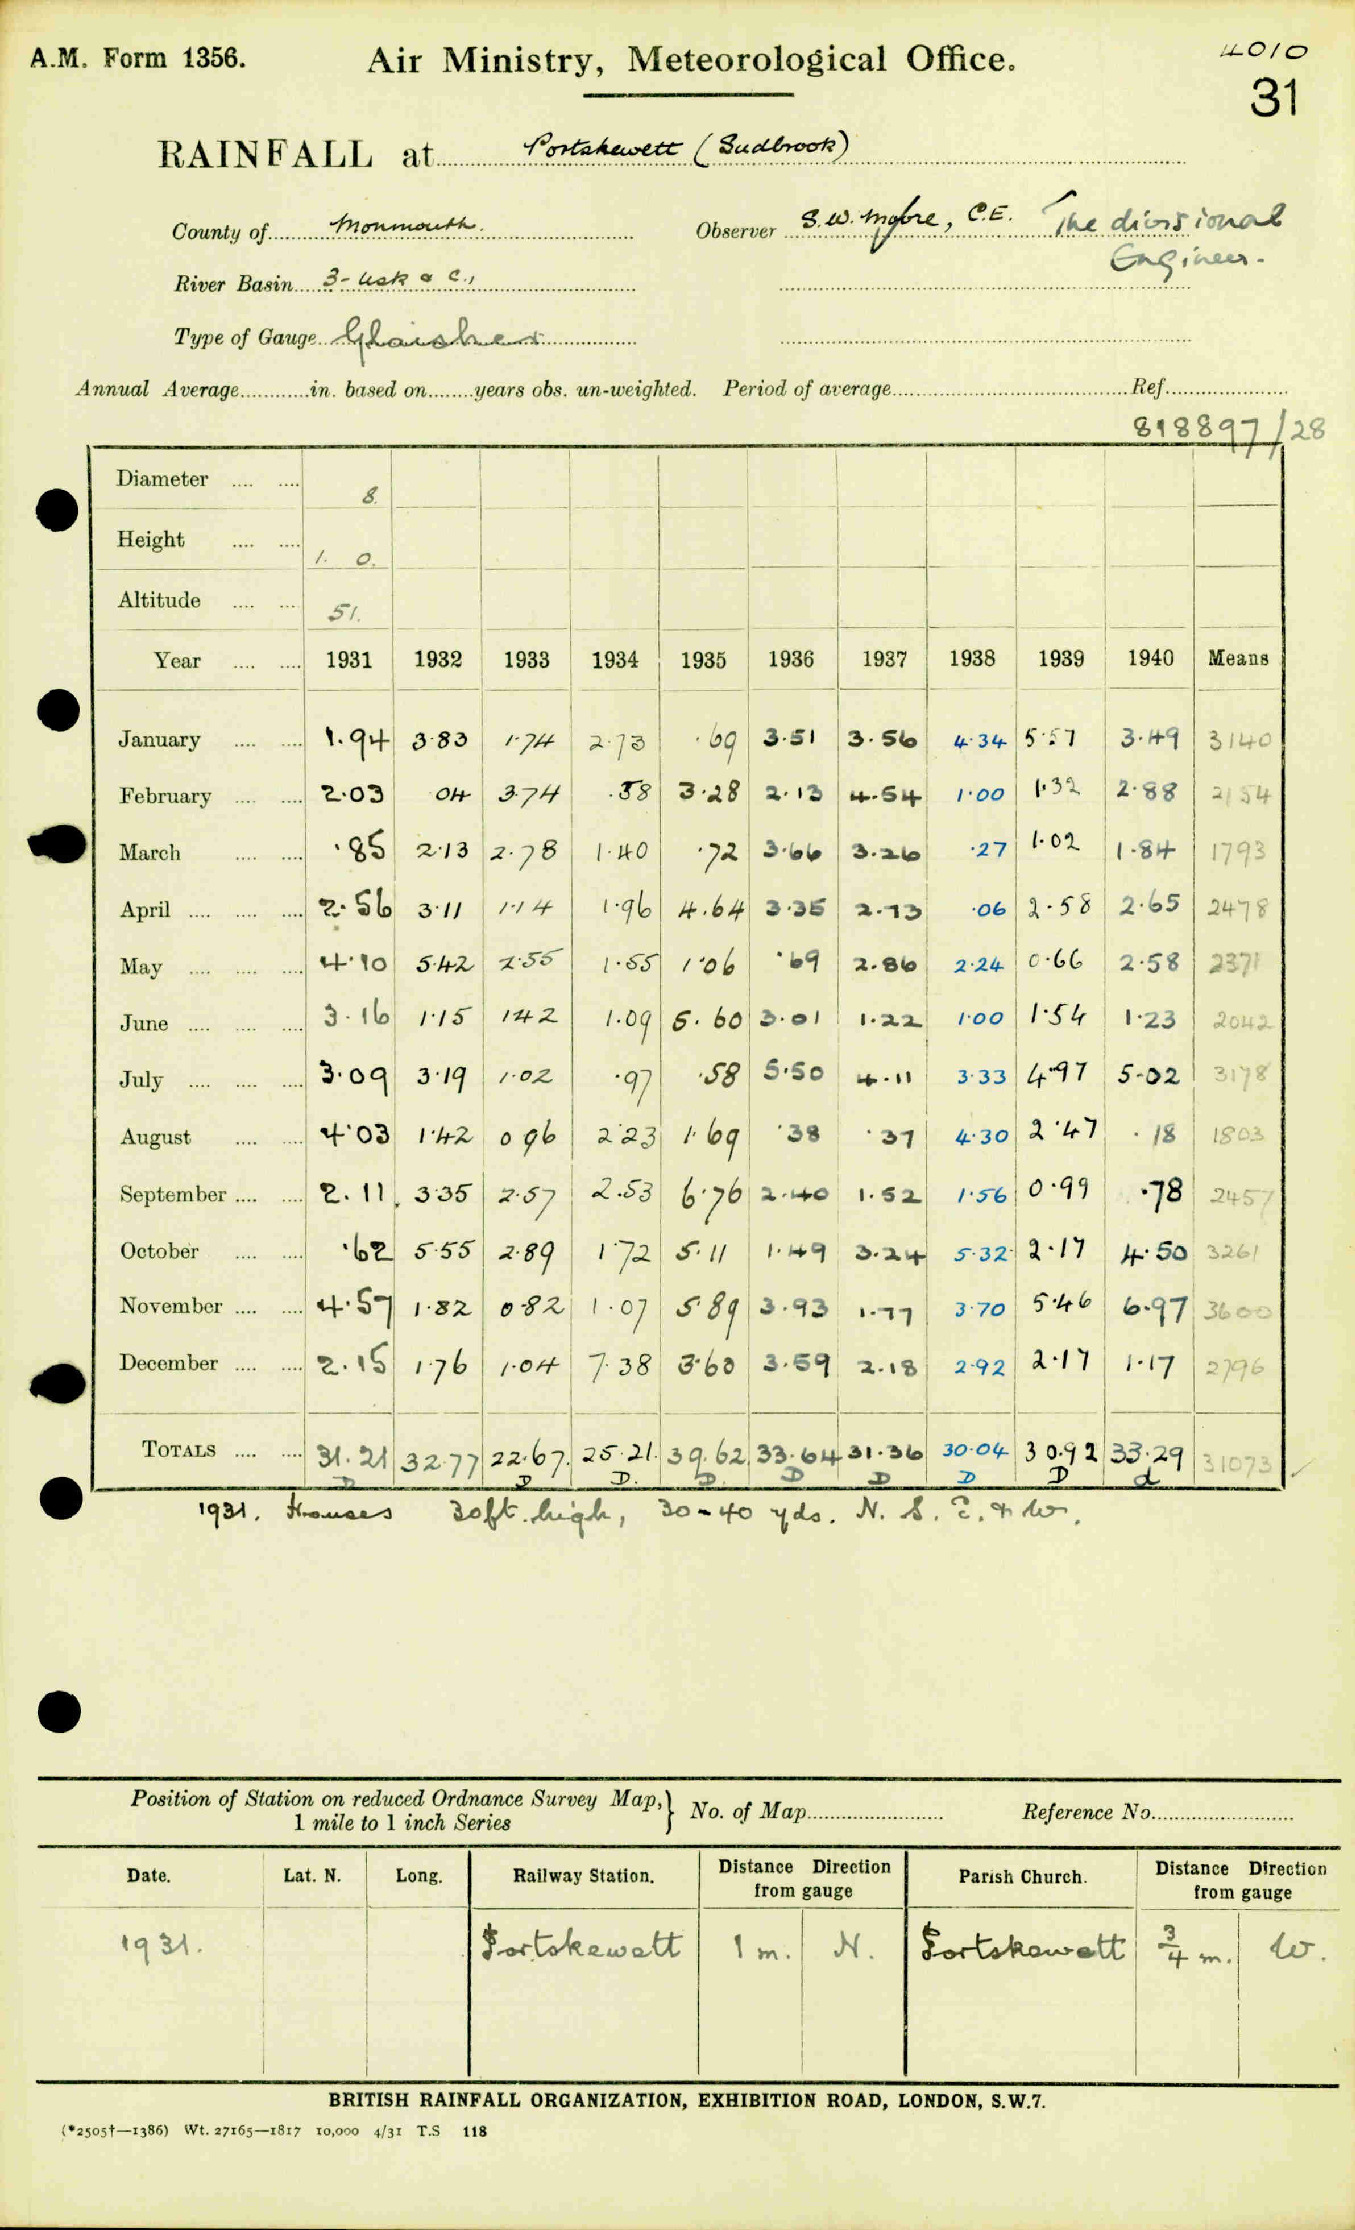 A.M. Form 1356.
Air Ministry, Meteorological Office.
4010
31
RAINFALL at Portskewett (Sudbrook)
County of Monmouth.
Observer S.W. Moore, C.E. The divisional Engineer.
River Basin 3 - Usk & C.,
Type of Gauge Glaisher
Annual Average in. based on years obs. un-weighted. Period of average Ref.
818897/28
Diameter 8.
Height 1. 0.
Altitude 51.
Year 1931 1932 1933 1934 1935 1936 1937 1938 1939 1940 Means
January 1.94 3.83 1.74 2.73 .69 3.51 3.56 4.34 5.57 3.49 3140
February 2.03 04 3.74 .58 3.28 2.13 4.54 1.00 1.32 2.88 2154
March .85 2.13 2.78 1.40 .72 3.66 3.26 .27 1.02 1.84 1793
April 2.56 3.11 1.14 1.96 4.64 3.35 2.73 .06 2.58 2.65 2478
May 4.10 5.42 2.55 1.55 1.06 .69 2.86 2.24 0.66 2.58 2371
June 3.16 1.15 1.42 1.09 5.60 3.01 1.22 1.00 1.54 1.23 2042
July 3.09 3.19 1.02 .97 .58 5.50 4.11 3.33 4.97 5.02 3178
August 4.03 1.42 0.96 2.23 1.69 .38 .37 4.30 2.47 .18 1803
September 2.11 3.35 2.57 2.53 6.76 2.40 1.52 1.56 0.99 .78 2457
October .62 5.55 2.89 1.72 5.11 1.49 3.24 5.32 2.17 4.50 3261
November 4.57 1.82 0.82 1.07 5.89 3.93 1.77 3.70 5.46 6.97 3600
December 2.15 1.76 1.04 7.38 3.60 3.59 2.18 2.92 2.17 1.17 2796
TOTALS 31.21 32.77 22.67. 25.21. 39.62 33.64 31.36 30.04 30.92 33.29 31073
D D D. D. D D D D d
1931. Houses 30ft. high, 30-40 yds. N. S. E. & W.
Position of Station on reduced Ordnance Survey Map, 1 mile to 1 inch Series } No. of Map Reference No.
Date. Lat. N. Long. Railway Station. Distance Direction from gauge Parish Church. Distance Direction from gauge
1931. Portskewett 1 m. N. Portskewett 3/4 m. W.
BRITISH RAINFALL ORGANIZATION, EXHIBITION ROAD, LONDON, S.W.7.
(*2505†—1386) Wt. 27165—1817 10,000 4/31 T.S 118